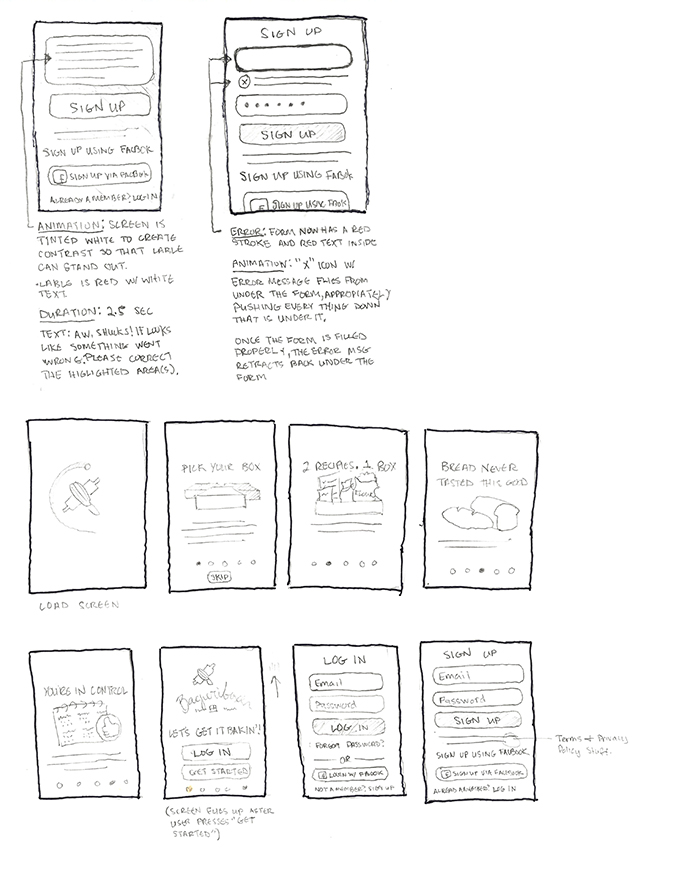 SIGN UP
SIGN UP USING FACBOK
f SIGN UP VIA FACBOK
ALREADY A MEMBER? LOG IN
ANIMATION: SCREEN IS
TINTED WHITE TO CREATE
CONTRAST SO THAT LABLE
CAN STAND OUT.
• LABLE IS RED W/ WHITE
TEXT
DURATION: 2.5 SEC
TEXT: AW, SHUCKS! IT LOOKS
LIKE SOMETHING WENT
WRONG. PLEASE CORRECT
THE HIGHLIGHTED AREA(S).
SIGN UP
X
SIGN UP
SIGN UP USING FABOK
f SIGN UP USING
ERROR: FORM NOW HAS A RED
STROKE AND RED TEXT INSIDE
ANIMATION: "X" ICON W/
ERROR MESSAGE FLIES FROM
UNDER THE FORM, APPROPIATELY
PUSHING EVERY THING DOWN
THAT IS UNDER IT.
ONCE THE FORM IS FILLED
PROPERLY, THE ERROR MSG
RETRACTS BACK UNDER THE
FORM
LOAD SCREEN
PICK YOUR BOX
SKIP
2 RECIPIES. 1 BOX
BREAD NEVER
TASTED THIS GOOD
YOU'RE IN CONTROL
LET'S GET IT BAKIN'!
LOG IN
GET STARTED
(SCREEN FLIES UP AFTER
USER PRESSES "GET
STARTED")
LOG IN
Email
Password
LOG IN
FORGOT PASSWORD?
OR
f LOGIN W/ FACBOK
NOT A MEMBER? SIGN UP
SIGN UP
Email
Password
SIGN UP
Terms + Privacy
Policy Stuff.
SIGN UP USING FACBOOK
f SIGN UP VIA FACBOOK
ALREAD A MEMBER? LOG IN